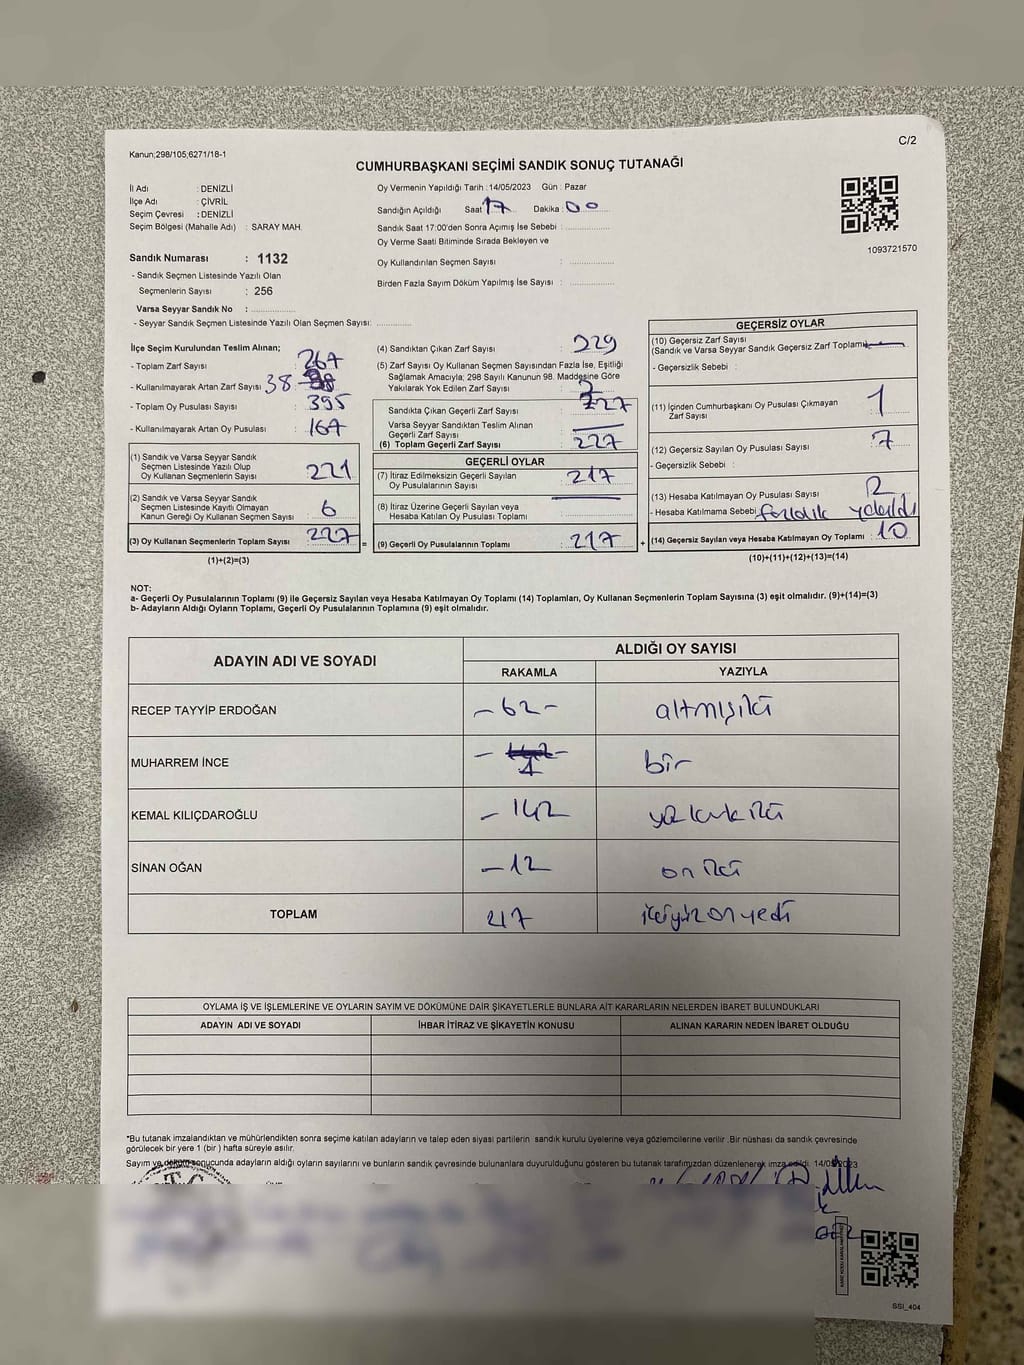 Kanun;298/105;6271/18-1
C/2
CUMHURBAŞKANI SEÇİMİ SANDIK SONUÇ TUTANAĞI
İl Adı : DENİZLİ
İlçe Adı : ÇİVRİL
Seçim Çevresi : DENİZLİ
Seçim Bölgesi (Mahalle Adı) : SARAY MAH.
Oy Vermenin Yapıldığı Tarih :14/05/2023 Gün : Pazar
Sandığın Açıldığı Saat 17 Dakika : 00
Sandık Saat 17:00'den Sonra Açımış İse Sebebi :
Oy Verme Saati Bitiminde Sırada Bekleyen ve
Oy Kullandırılan Seçmen Sayısı :
Birden Fazla Sayım Döküm Yapılmış İse Sayısı :
1093721570
Sandık Numarası : 1132
- Sandık Seçmen Listesinde Yazılı Olan
Seçmenlerin Sayısı : 256
Varsa Seyyar Sandık No :
- Seyyar Sandık Seçmen Listesinde Yazılı Olan Seçmen Sayısı:
İlçe Seçim Kurulundan Teslim Alınan;
- Toplam Zarf Sayısı : 267
- Kullanılmayarak Artan Zarf Sayısı 38
- Toplam Oy Pusulası Sayısı : 395
- Kullanılmayarak Artan Oy Pusulası : 167
(1) Sandık ve Varsa Seyyar Sandık
Seçmen Listesinde Yazılı Olup
Oy Kullanan Seçmenlerin Sayısı : 221
(2) Sandık ve Varsa Seyyar Sandık
Seçmen Listesinde Kayıtlı Olmayan
Kanun Gereği Oy Kullanan Seçmen Sayısı : 6
(3) Oy Kullanan Seçmenlerin Toplam Sayısı : 227 =
(1)+(2)=(3)
(4) Sandıktan Çıkan Zarf Sayısı : 229
(5) Zarf Sayısı Oy Kullanan Seçmen Sayısından Fazla İse, Eşitliği
Sağlamak Amacıyla; 298 Sayılı Kanunun 98. Maddesine Göre
Yakılarak Yok Edilen Zarf Sayısı : 2
Sandıkta Çıkan Geçerli Zarf Sayısı : 227
Varsa Seyyar Sandıktan Teslim Alınan
Geçerli Zarf Sayısı
(6) Toplam Geçerli Zarf Sayısı : 227
GEÇERLİ OYLAR
(7) İtiraz Edilmeksizin Geçerli Sayılan
Oy Pusulalarının Sayısı : 217
(8) İtiraz Üzerine Geçerli Sayılan veya
Hesaba Katılan Oy Pusulası Toplamı
(9) Geçerli Oy Pusulalarının Toplamı : 217 +
GEÇERSİZ OYLAR
(10) Geçersiz Zarf Sayısı
(Sandık ve Varsa Seyyar Sandık Geçersiz Zarf Toplamı)
- Geçersizlik Sebebi :
(11) İçinden Cumhurbaşkanı Oy Pusulası Çıkmayan
Zarf Sayısı : 1
(12) Geçersiz Sayılan Oy Pusulası Sayısı : 7
- Geçersizlik Sebebi :
(13) Hesaba Katılmayan Oy Pusulası Sayısı 2
- Hesaba Katılmama Sebebi fazlalık yakıldı
(14) Geçersiz Sayılan veya Hesaba Katılmayan Oy Toplamı : 10
(10)+(11)+(12)+(13)=(14)
NOT:
a- Geçerli Oy Pusulalarının Toplamı (9) ile Geçersiz Sayılan veya Hesaba Katılmayan Oy Toplamı (14) Toplamları, Oy Kullanan Seçmenlerin Toplam Sayısına (3) eşit olmalıdır. (9)+(14)=(3)
b- Adayların Aldığı Oyların Toplamı, Geçerli Oy Pusulalarının Toplamına (9) eşit olmalıdır.
ADAYIN ADI VE SOYADI ALDIĞI OY SAYISI
RAKAMLA YAZIYLA
RECEP TAYYİP ERDOĞAN -62- altmışiki
MUHARREM İNCE - 1 - bir
KEMAL KILIÇDAROĞLU -142 yüzkırkiki
SİNAN OĞAN -12 on iki
TOPLAM 217 ikiyüzonyedi
OYLAMA İŞ VE İŞLEMLERİNE VE OYLARIN SAYIM VE DÖKÜMÜNE DAİR ŞİKAYETLERLE BUNLARA AİT KARARLARIN NELERDEN İBARET BULUNDUKLARI
ADAYIN ADI VE SOYADI İHBAR İTİRAZ VE ŞİKAYETİN KONUSU ALINAN KARARIN NEDEN İBARET OLDUĞU
*Bu tutanak imzalandıktan ve mühürlendikten sonra seçime katılan adayların ve talep eden siyasi partilerin sandık kurulu üyelerine veya gözlemcilerine verilir .Bir nüshası da sandık çevresinde
görülecek bir yere 1 (bir ) hafta süreyle asılır.
Sayım ve döküm sonucunda adayların aldığı oyların sayılarını ve bunların sandık çevresinde bulunanlara duyurulduğunu gösteren bu tutanak tarafımızdan düzenlenerek imza edildi. 14/05/2023
SSI_404